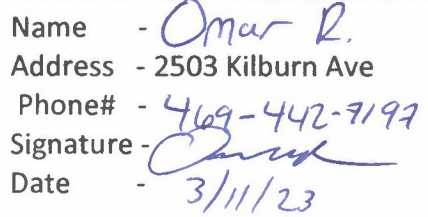 Name - Omar R.
Address - 2503 Kilburn Ave
Phone# - 469-442-7197
Signature -
Date - 3/11/23